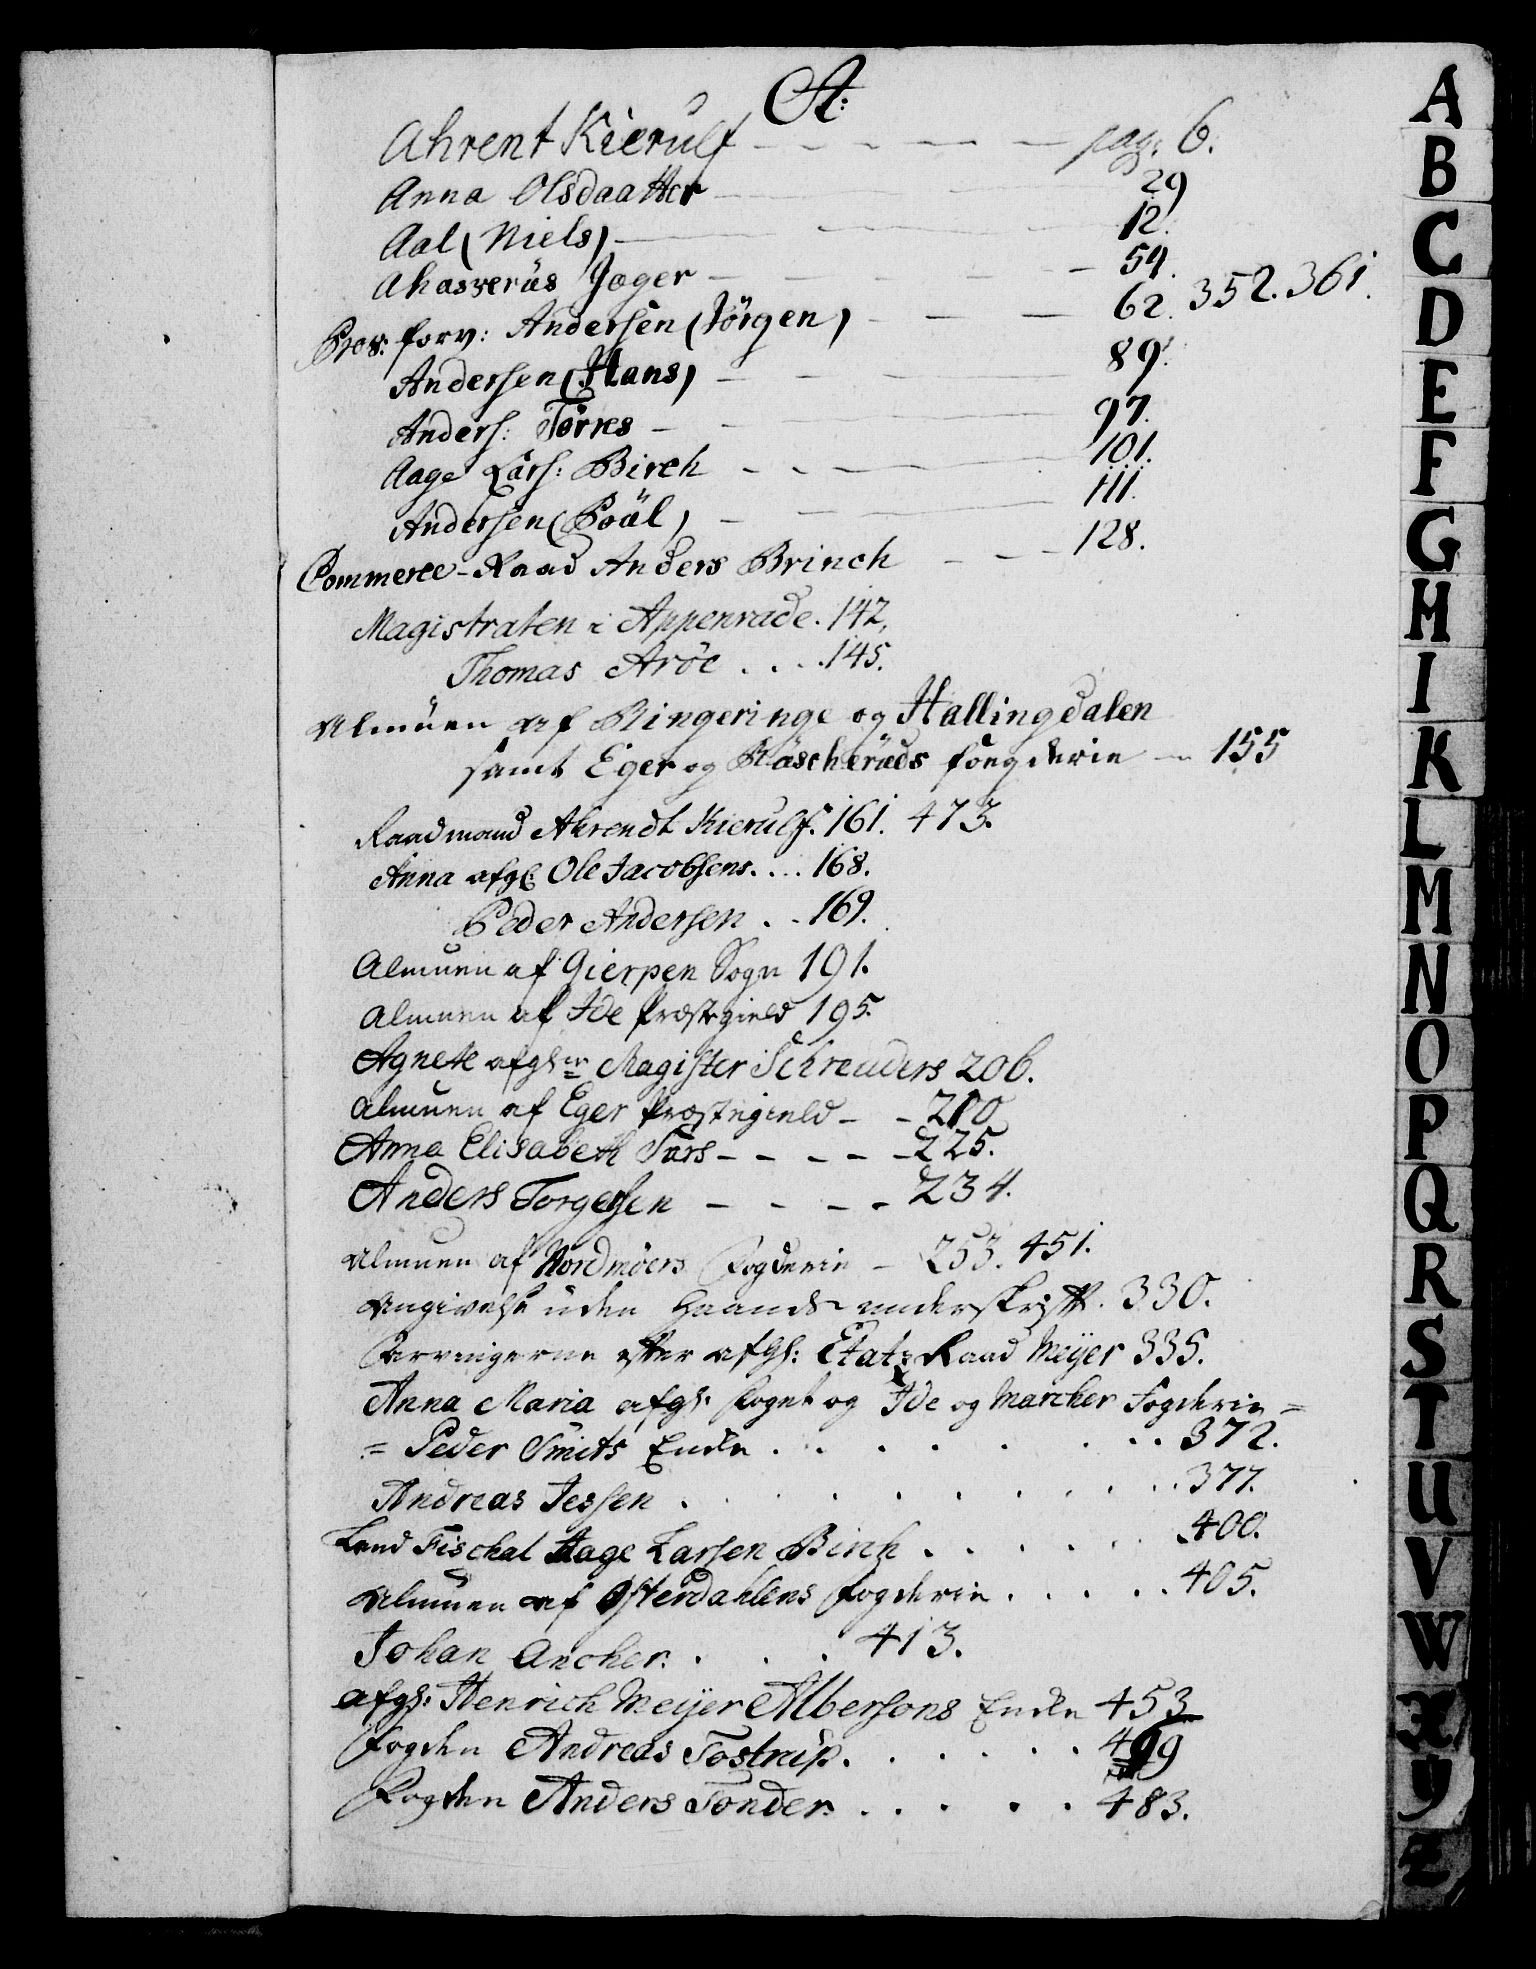 A:
Ahrent Kierulf - - - - - pag: 6.
Anna Olsdaatter - 29
Aal (Niels) - 12.
Ahasverüs Jager - 54.
Pros: forv: Andersen (Jörgen) - - - 62. 352. 361.
Andersen (Hans) - 89.
Anders: Törres - 97.
Aage Lars: Birch - - - 101.
Andersen (Poül) - 111.
Commerce-Raad Anders Brinch - - - 128.
Magistraten i Appenrade. 142.
Thomas Aröe . . . . 145.
Almüen af Ringeringe og Hallingdalen
samt Eger og Büscherüds fougderie - 155
Raadmand Ahrendt Kierulf. 161. 473.
Anna afg: Ole Jacobsens. . . . 168.
Peder Andersen . . 169.
Almuen af Gierpen Sogn 191.
Almuen af Ide Præstegield 195.
Agnete afgl: Magister Schreuders 206.
Almuen af Eger Præstegield - - 210
Anna Elisabeth Turs - - - - - 225.
Anders Torgersen - - - - 234.
Almuen af Nordmöers Fogderie - 253. 451.
Angivelse uden Haands underskrifft. 330.
Arvingerne efter afgl: Etats Raad Meyer 335.
Anna Maria afgl: Fogut og Ide og Marcker Fogderie =
= Peder Smits Encke . . . . . . . . 372.
Andreas Jessen . . . . . . . . . 377.
Land Fischal Aage Larsen Birch . . . . . . 400.
Almuen af Østerdahlens Fogderie . . . . . 405.
Johan Ancher. . . . . 413.
afgl: Henrich Meyer Albersons Encke 453
Fogden Andreas Tostrup. . . . . . 499
Fogden Anders Tonder. . . . . . 483.
A
B
C
D
E
F
G
H
I
K
L
M
N
O
P
Q
R
S
T
U
V
W
X
Y
Z